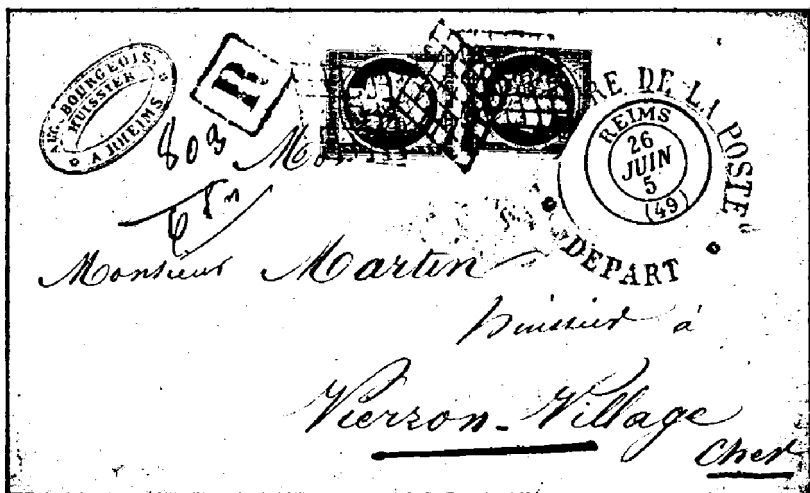 AUG. BOURGEOIS,
HUISSIER
A RHEIMS
R
803
RE DE LA POSTE
REIMS
26
JUIN
5
(49)
DEPART
Monsieur Martin
huissier à
Vierzon-Village
Cher